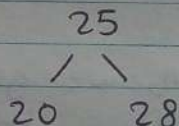 25
20 28